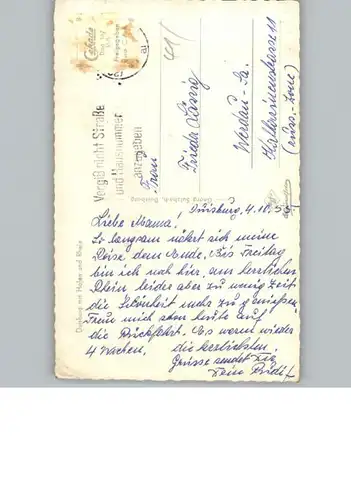 Vergiß nicht Straße
und Hausnummer
anzugeben
Frau
Frieda
Werdau-Sa.
11
(russ. Zone)
Duisburg, 4.10.55
Liebe Mama!
So langsam nähert sich meine
Reise dem Ende. Bis Freitag
bin ich noch hier, am herrlichen
Rhein leider aber zu wenig Zeit
die Schönheit zu genießen
Freue mich schon heute auf
die Rückfahrt. Es waren wieder
4 Wochen. die herzlichsten
Grüsse sendet Dir
Dein
Duisburg mit Hafen und Rhein